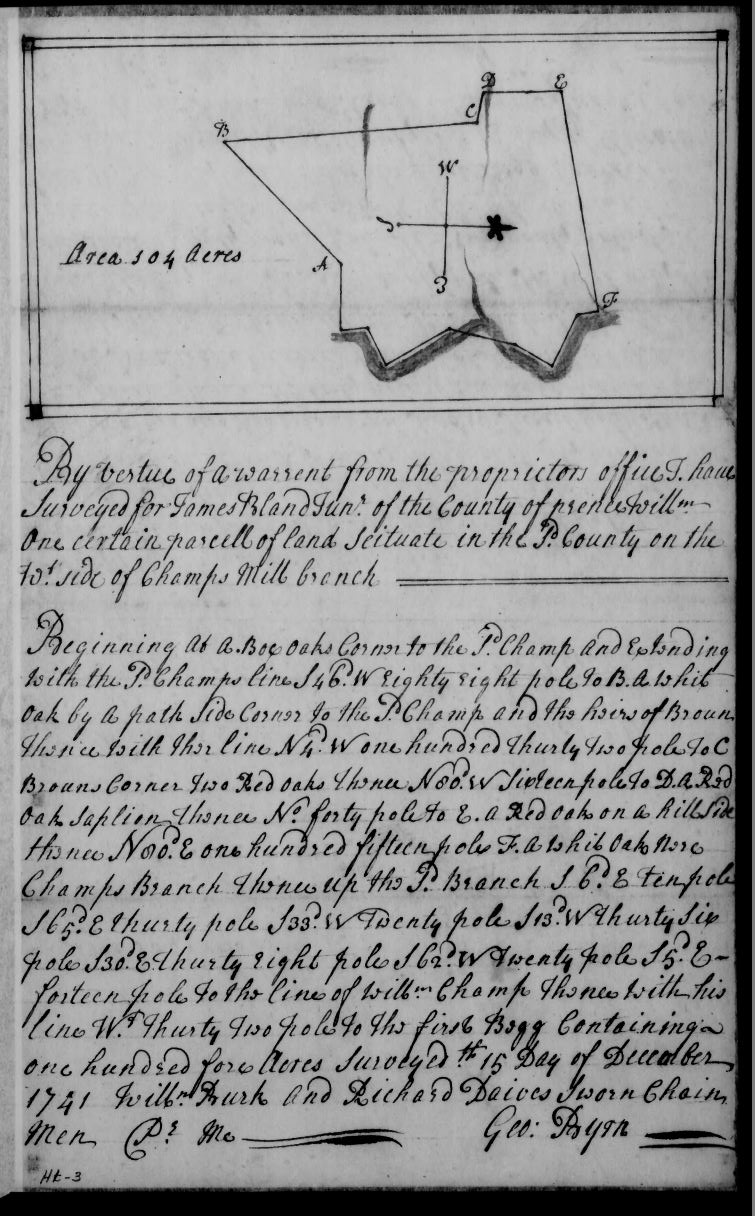 B
C
D
E
W
S
Area 104 Acres
A
E
F
By vertue of a warrent from the proprietors office I. have
Surveyed for James Bland Junr. of the County of prence Willm
One certain parcell of land Scituate in the Sd. County on the
Wt. side of Champs Mill branch
Beginning At A. Box oaks Corner to the Sd. Champ and Extending
With the Sd. Champs line S46d. W Eighty Eight pole to B. A whit
Oak by A path Side Corner to the Sd. Champ and the heirs of Broun
thence With ther line N4d. W one hundred thurty two pole To C
Brouns Corner two Red oaks thence N80d. W Sixteen pole to D. A Red
Oak Saplion thence No. forty pole to E. a Red oak on a hill Side
thence N80d. E one hundred fifteen poles F. A whit Oak nere
Champs Branch thence up the Sd. Branch S 6d. E ten pole
S65d. E thurty pole S33d. W Twenty pole S13d. W thurty Six
pole S30d. E thurty Eight pole S62d. W Twenty pole S5d. E
forteen pole to the line of Willm Champ thence with his
line Wt. thurty two pole to the first Begg Containing
one hundred fore Acres Surveyed th 15 Day of December
1741 Willm Burk And Richard Daives Sworn Chain
Men Pr. Me Geo: Byrn
Ht-3